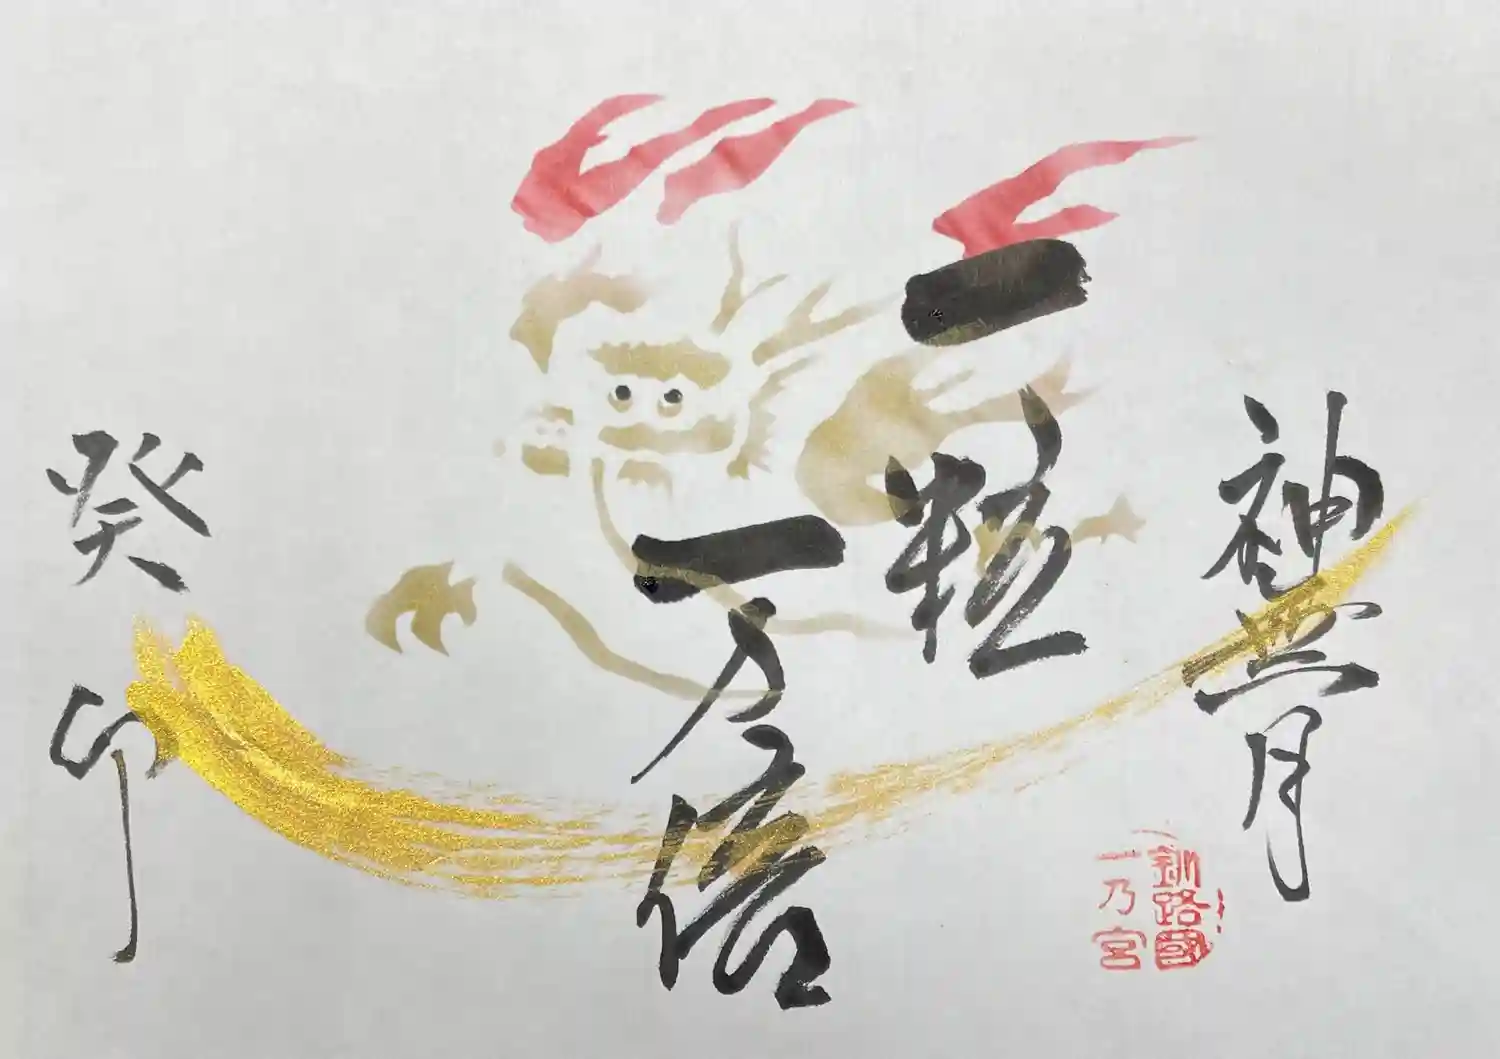 神嘗月
一粒
一万倍
癸卯
釧路國
一乃宮